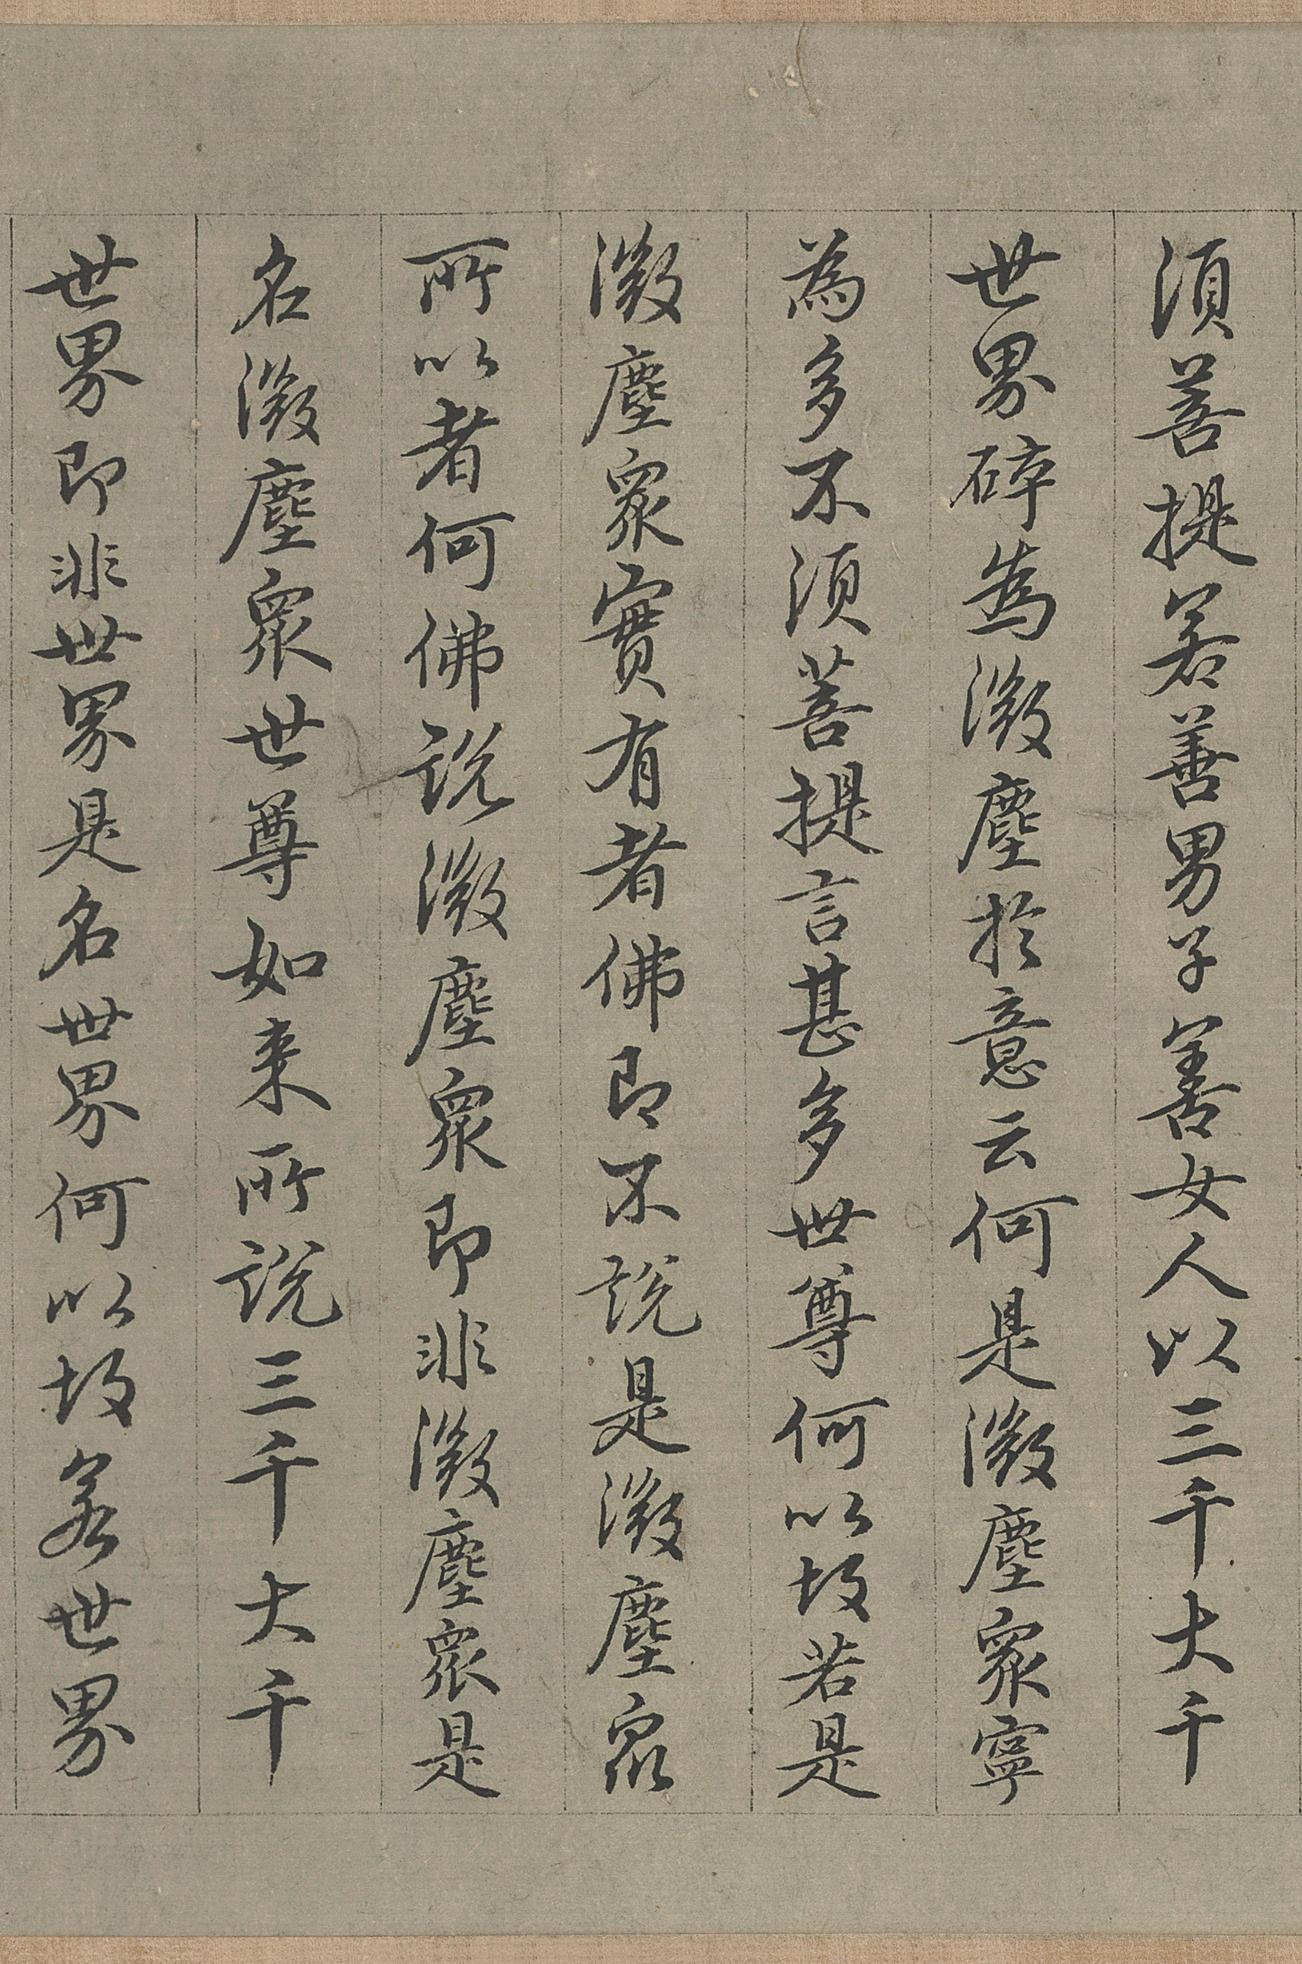 須菩提若善男子善女人以三千大千
世界碎為微塵於意云何是微塵眾寧
為多不須菩提言甚多世尊何以故若是
微塵眾實有者佛即不說是微塵眾
所以者何佛說微塵眾即非微塵眾是
名微塵眾世尊如来所說三千大千
世界即非世界是名世界何以故若世界